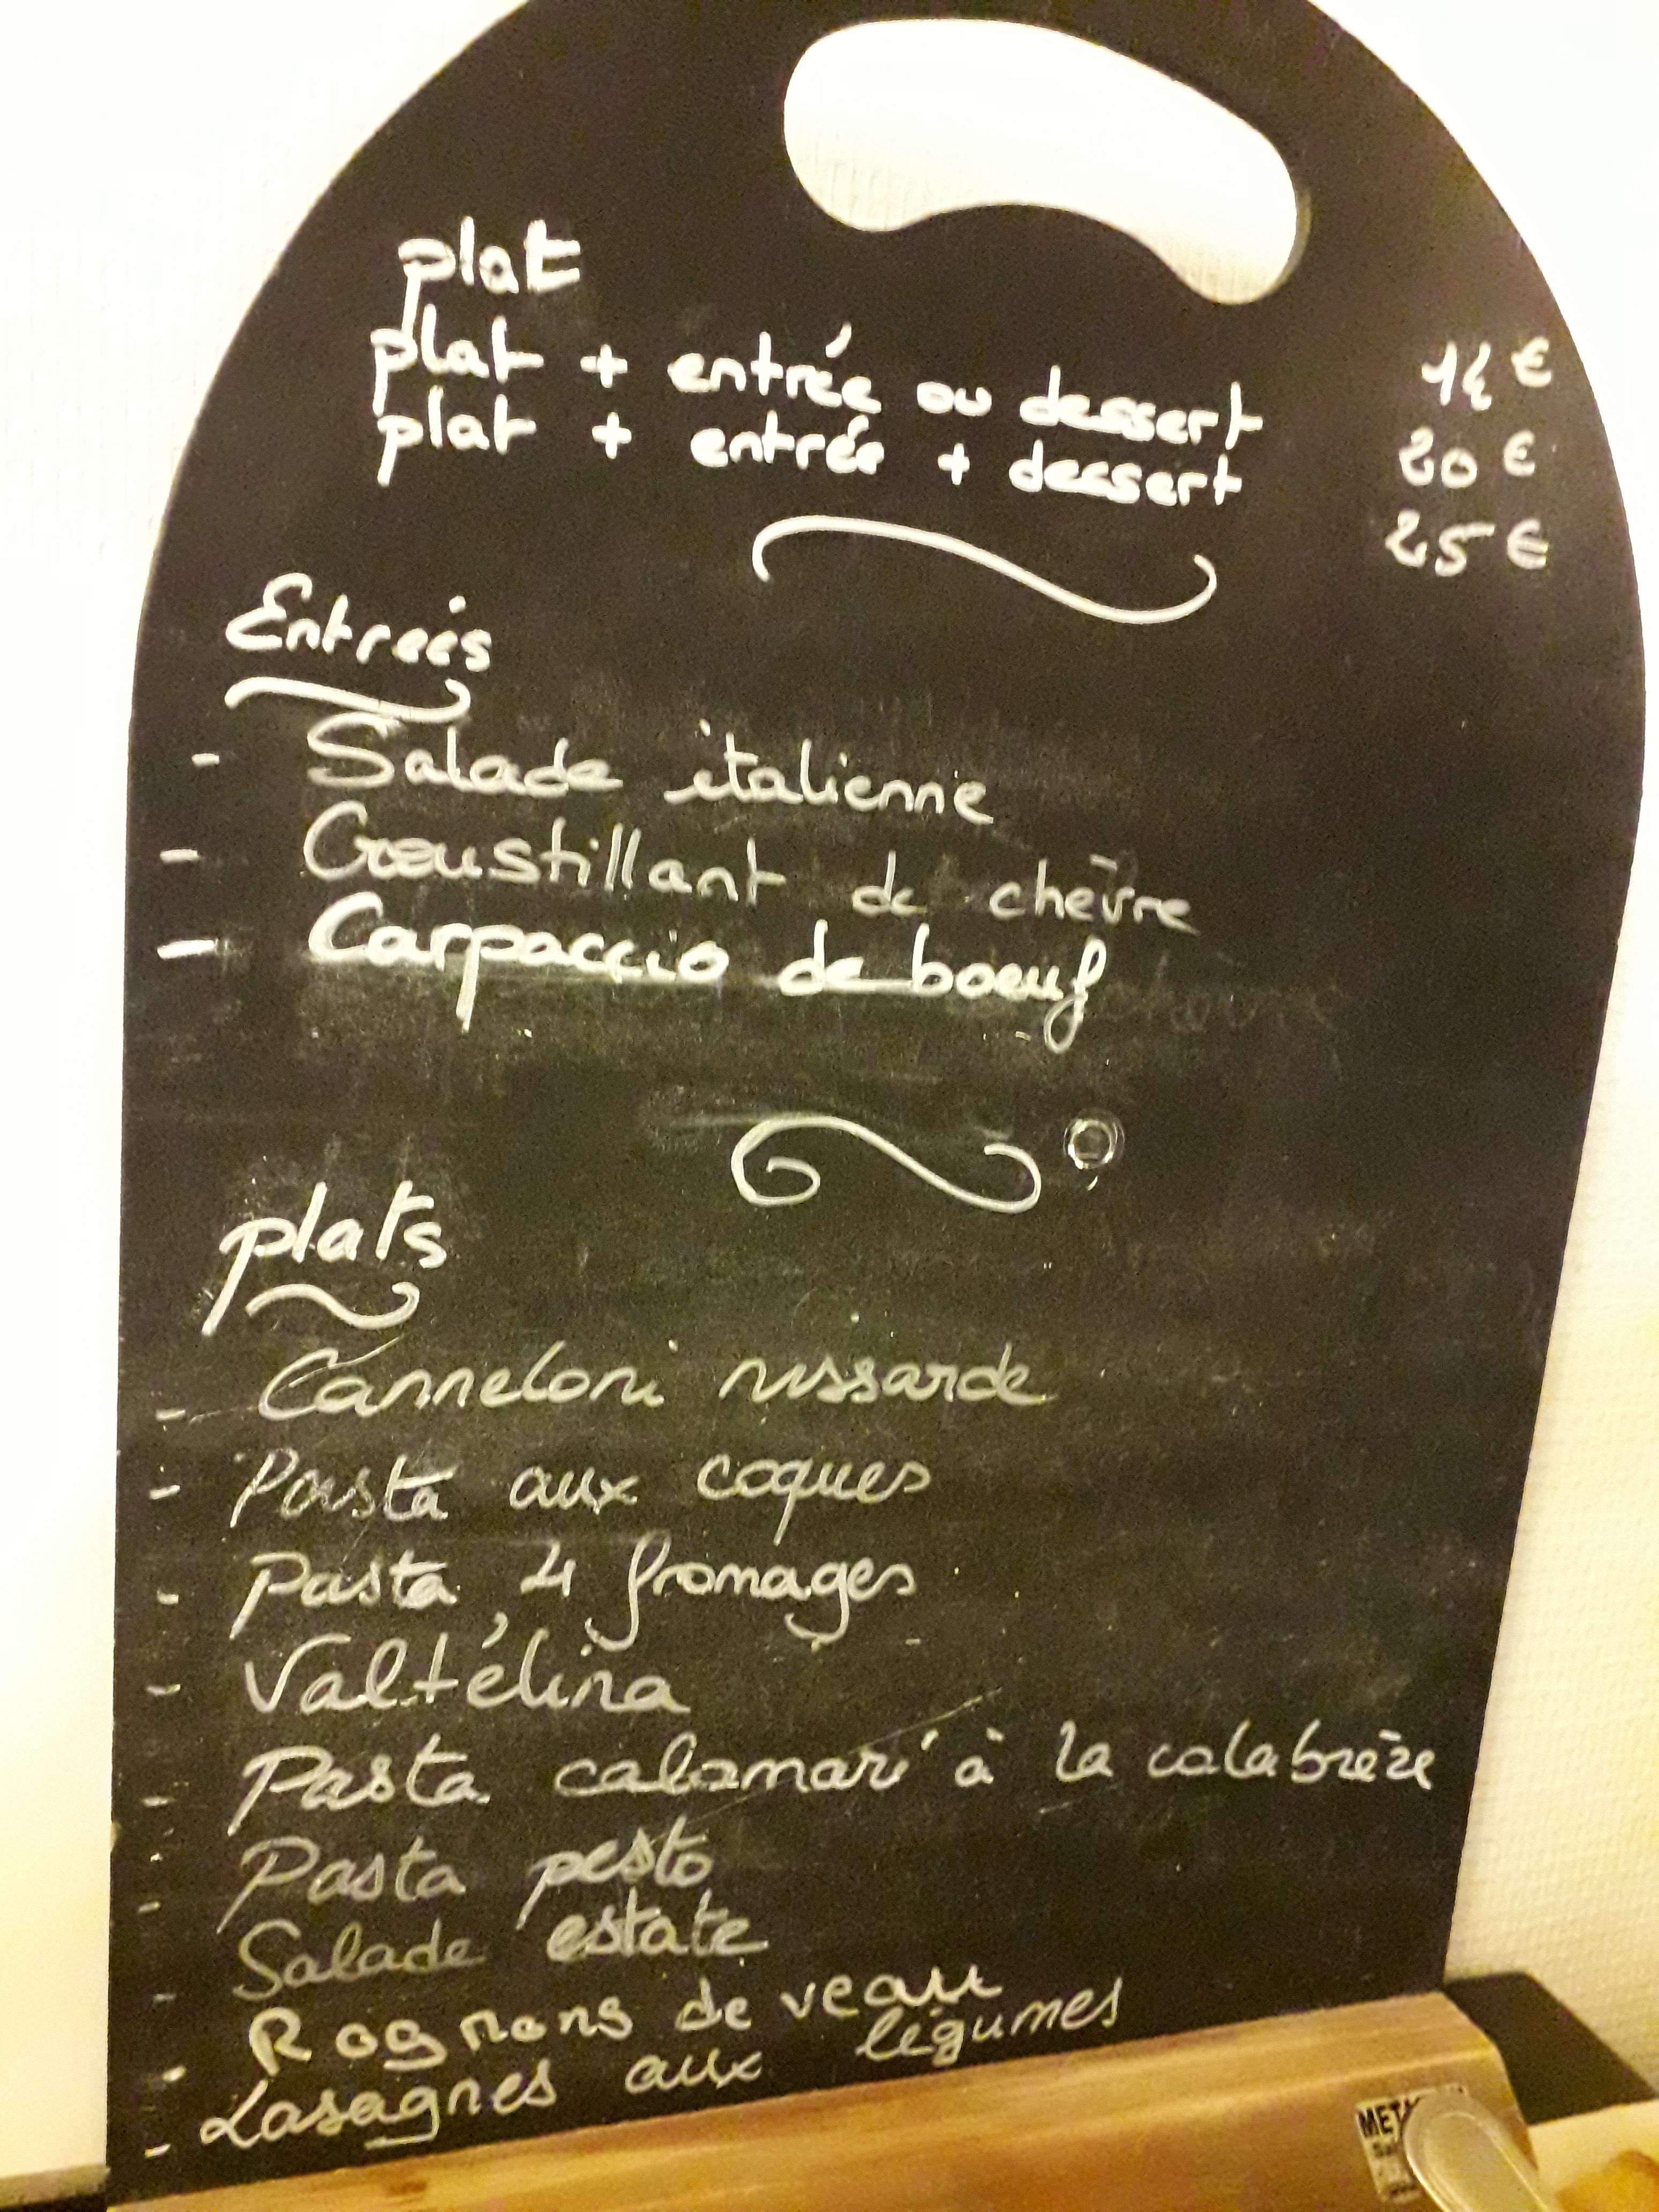 plat 14 €
plat + entrée ou dessert 20 €
plat + entrée + dessert 25 €
Entrées
- Salade italienne
- Croustillant de chèvre
- Carpaccio de boeuf
plats
- Canneloni nissarde
- Pasta aux coques
- Pasta 4 fromages
- Valtélina
- Pasta calamari à la calabrèze
- Pasta pesto
- Salade estate
- Rognons de veau
- Lasagnes aux légumes